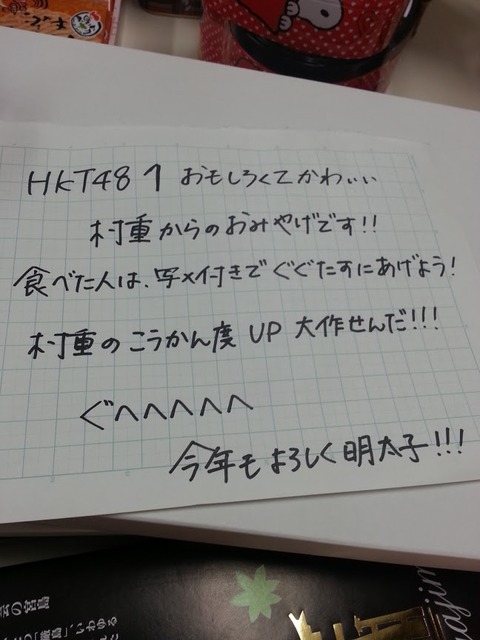 HKT481おもしろくてかわぃぃ
村重からのおみやげです!!
食べた人は、写メ付きでぐぐたすにあげよう!
村重のこうかん度UP大作せんだ!!!
ぐへへへへへ
今年もよろしく明太子!!!
芸の宮島